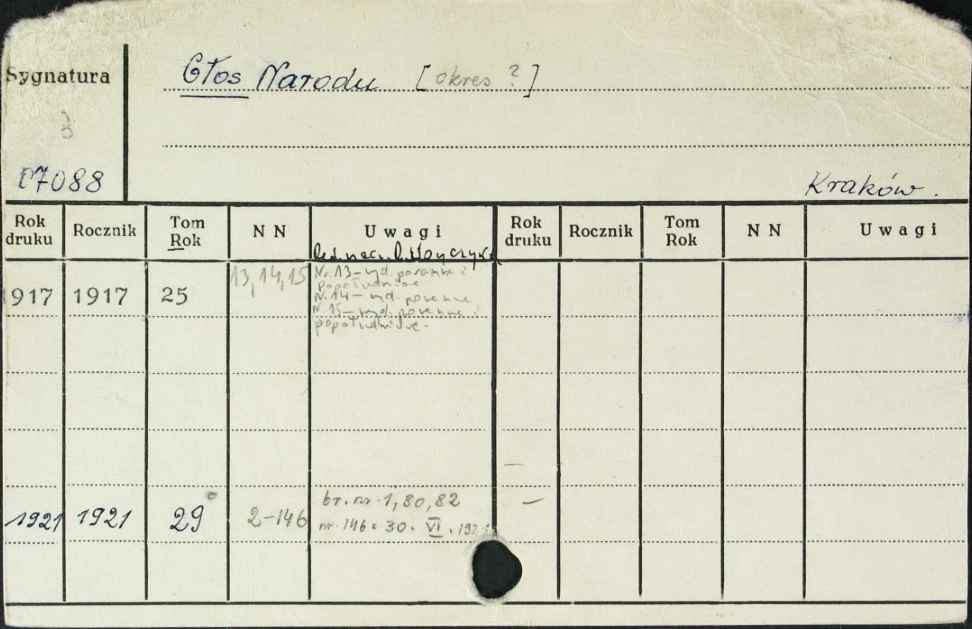 Sygnatura
Głos Narodu [okres ?]
7088
Kraków.
Rok druku Rocznik Tom Rok N N Uwagi Rok druku Rocznik Tom Rok N N Uwagi
917 1917 25 13,14,15 Nr.13-wyd. poranne i
popołudniowe
N.14- wyd. poranne
N.15-wyd. poranne i
popołudniowe.
1921 1921 29 2-146 br. nr. 1,80,82
nr 146. 30. VI.